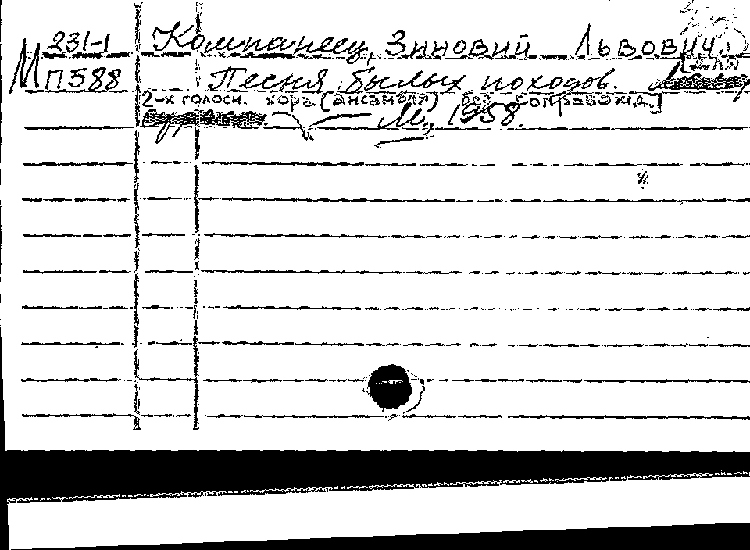 231-1 Компанеец, Зиновий Львович.
М П588 Песня былых походов. [Для
2-х голосн. хора (ансамбля) без сопровожд.]
М., 1958.